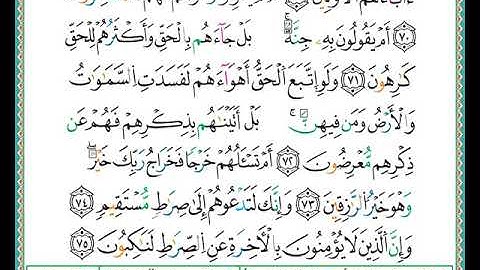 ٧٠ أَمْ يَقُولُونَ بِهِۦ جِنَّةٌۢ بَلْ جَآءَهُم بِالْحَقِّ وَأَكْثَرُهُمْ لِلْحَقِّ
كَٰرِهُونَ ٧١ وَلَوِ اتَّبَعَ الْحَقُّ أَهْوَآءَهُمْ لَفَسَدَتِ السَّمَٰوَٰتُ
وَالْأَرْضُ وَمَن فِيهِنَّ بَلْ أَتَيْنَٰهُم بِذِكْرِهِمْ فَهُمْ عَن
ذِكْرِهِم مُّعْرِضُونَ ٧٢ أَمْ تَسْـَٔلُهُمْ خَرْجًا فَخَرَاجُ رَبِّكَ خَيْرٌ
وَهُوَ خَيْرُ الرَّٰزِقِينَ ٧٣ وَإِنَّكَ لَتَدْعُوهُمْ إِلَىٰ صِرَٰطٍ مُّسْتَقِيمٍ ٧٤
وَإِنَّ الَّذِينَ لَا يُؤْمِنُونَ بِالْءَاخِرَةِ عَنِ الصِّرَٰطِ لَنَٰكِبُونَ ٧٥